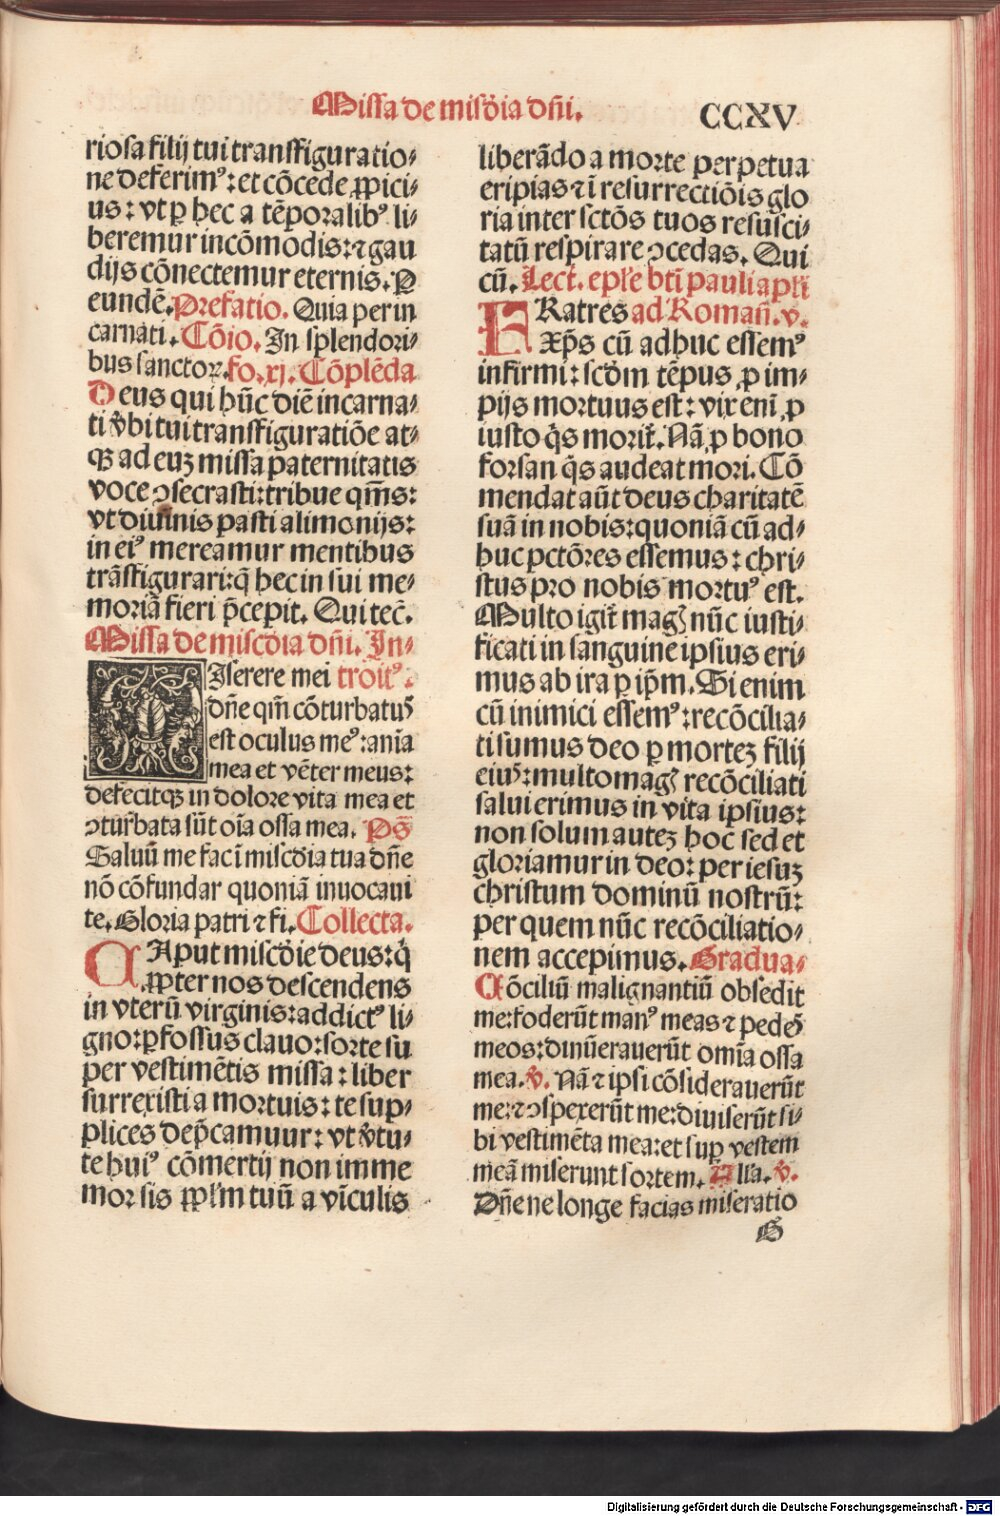 Missa de misc̄dia dn̄i.
CCXV
riosa filij tui transfiguratio-
ne deferimꝰ: et cōcede ꝓpici-
us: vt ꝑ hec a tēporalibꝰ li-
beremur incōmodis: ⁊ gau
dijs cōnectemur eternis. P
eundē. Prefatio. Quia per in
carnati. Cōio. In splendori-
bus sanctoꝝ. fo. xj. Cōplēda
Deus qui hūc diē incarna-
ti v̄bi tui transfiguratiōe at-
qꝫ ad euꝫ missa paternitatis
voce ↄsecrasti: tribue qm̄s:
vt diuinis pasti alimonijs:
in eiꝰ mereamur mentibus
trāsfigurari: q̄ hec in sui me-
moriā fieri p̄cepit. Qui tec̄.
Missa de misc̄dia dn̄i. In-
MIserere mei troitꝰ.
dn̄e qm̄ cōturbatus
est oculus meꝰ: anīa
mea et vēter meus:
defecitqꝫ in dolore vita mea et
ↄturbata sūt oīa ossa mea. Ps̄
Saluū me fac ī misc̄dia tua dn̄e
nō cōfundar quoniā inuocaui
te. Gloria patri ⁊ fi. Collecta.
CAput misc̄die deus: q̄
ꝓpter nos descendens
in vterū virginis: addictꝰ li-
gno: ꝑfossus clauo: sorte su
per vestimētis missa: liber
surrexisti a mortuis: te sup-
plices dep̄camuur: vt v̄tu-
te huiꝰ cōmertij non imme
mor sis ꝓpl̄m tuū a vīculis
liberādo a morte perpetua
eripias ⁊ ī resurrectiōis glo
ria inter sctōs tuos resusci-
tatū respirare ↄcedas. Qui
cū. Lect. epl̄e bt̄i pauli apl̄i
FRatres ad Romañ. v.
Xp̄s cū adhuc essemꝰ
infirmi: scd̄m tēpus ꝓ im-
pijs mortuus est: vix enī ꝓ
iusto q̄s morit̄. Nā ꝓ bono
forsan q̄s audeat mori. Cō
mendat aūt deus charitatē
suā in nobis: quoniā cū ad-
huc pctōres essemus: chri-
stus pro nobis mortuꝰ est.
Multo igit̄ mag̣ nūc iusti-
ficati in sanguine ipsius eri-
mus ab ira ꝑ ip̄m. Si enim
cū inimici essemꝰ: recōcilia-
ti sumus deo ꝑ morteꝫ filij
eiuꝰ: multomag̣ recōciliati
salui erimus in vita ipsius:
non solum auteꝫ hoc sed et
gloriamur in deo: per iesuꝫ
christum dominū nostrū:
per quem nūc recōciliatio-
nem accepimus. Gradua-
Cōciliū malignantiū obsedit
me: foderūt manꝰ meas ⁊ pedes
meos: dinūerauerūt omīa ossa
mea. v̄. Nā ⁊ ipsi cōsiderauerūt
me: ⁊ ↄspexerūt me: diuiserūt si-
bi vestimēta mea: et suꝑ vestem
meā miserunt sortem. Alla. v̄.
Dn̄e ne longe facias miseratio
G
Digitalisierung gefördert durch die Deutsche Forschungsgemeinschaft - DFG